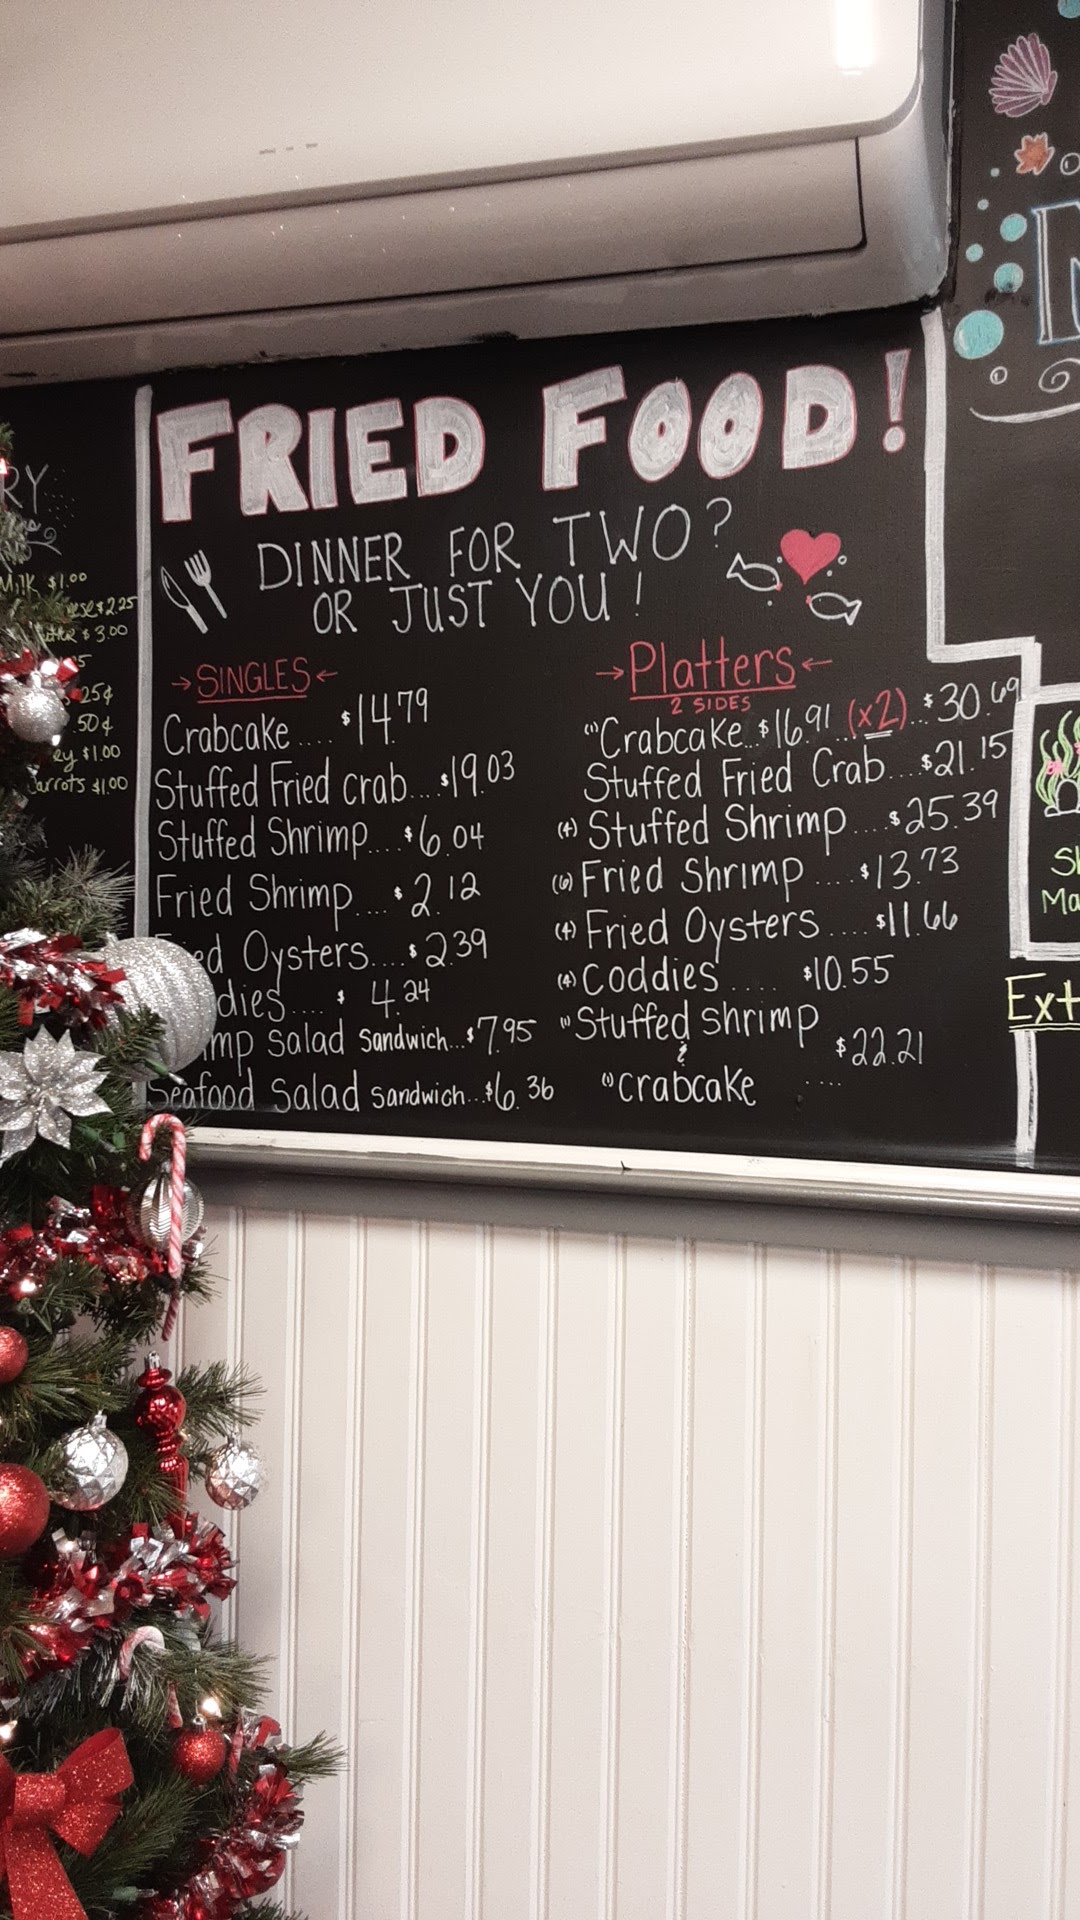 FRIED FOOD!
DINNER FOR TWO?
OR JUST YOU!
→SINGLES←
Crabcake.... $14.79
Stuffed Fried crab...$19.03
Stuffed Shrimp....$6.04
Fried Shrimp.... $2.12
Oysters....$2.39
.... $4.24
Salad Sandwich...$7.95
Seafood Salad Sandwich...$6.36
→Platters←
2 SIDES
(1) Crabcake...$16.91 (x2)...$30.69
Stuffed Fried Crab....$21.15
(4) Stuffed Shrimp....$25.39
(6) Fried Shrimp....$13.73
(4) Fried Oysters....$11.66
(4) Coddies.... $10.55
(1) Stuffed Shrimp
&
(1) Crabcake .... $22.21
$1.00
$2.25
$3.00
25¢
.50¢
$1.00
$1.00